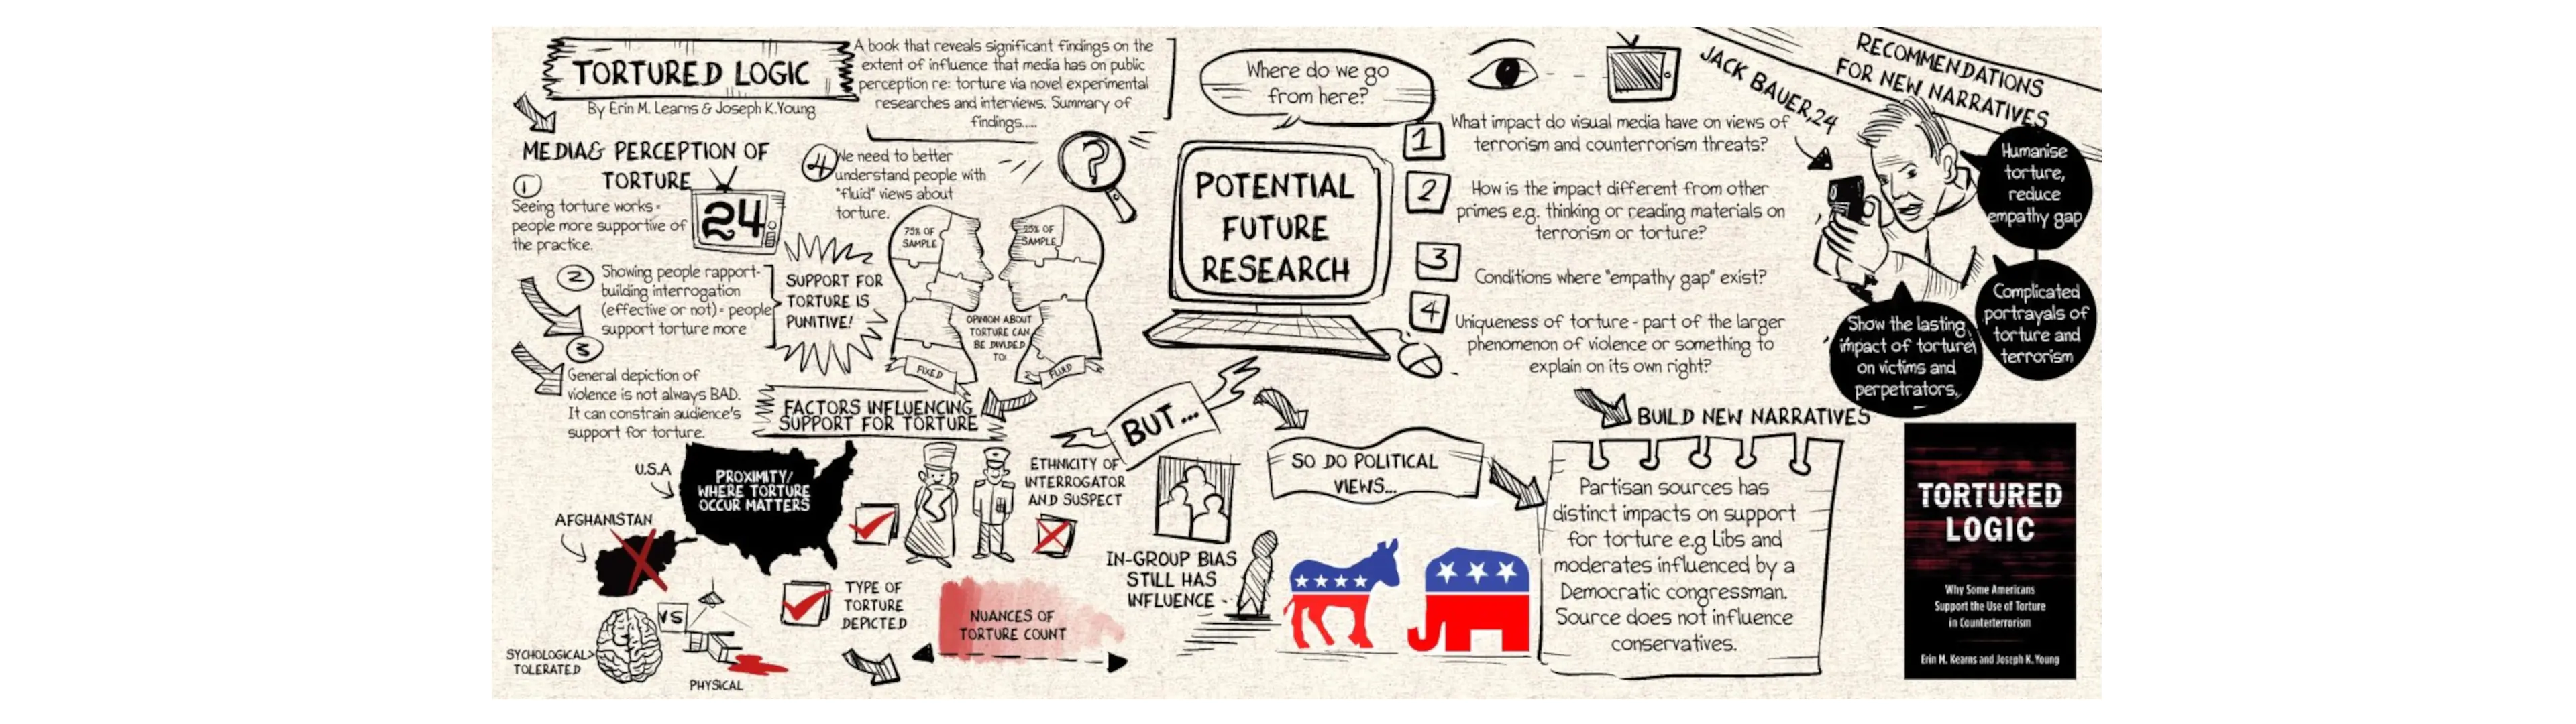 TORTURED LOGIC
By Erin M. Learns & Joseph K.Young
A book that reveals significant findings on the
extent of influence that media has on public
perception re: torture via novel experimental
researches and interviews. Summary of
findings.....
MEDIA& PERCEPTION OF
TORTURE
24
1
Seeing torture works =
people more supportive of
the practice.
2
Showing people rapport-
building interrogation
(effective or not) = people
support torture more
3
General depiction of
violence is not always BAD.
It can constrain audience's
support for torture.
4
We need to better
understand people with
"fluid" views about
torture.
?
SUPPORT FOR
TORTURE IS
PUNITIVE!
75% OF
SAMPLE
25% OF
SAMPLE
OPINION ABOUT
TORTURE CAN
BE DIVIDED
TO:
FIXED
FLUID
FACTORS INFLUENCING
SUPPORT FOR TORTURE
U.S.A
PROXIMITY/
WHERE TORTURE
OCCUR MATTERS
AFGHANISTAN
ETHNICITY OF
INTERROGATOR
AND SUSPECT
VS
SYCHOLOGICAL>
TOLERATED
PHYSICAL
TYPE OF
TORTURE
DEPICTED
NUANCES OF
TORTURE COUNT
BUT...
IN-GROUP BIAS
STILL HAS
INFLUENCE
SO DO POLITICAL
VIEWS...
Where do we go
from here?
POTENTIAL
FUTURE
RESEARCH
1
What impact do visual media have on views of
terrorism and counterrorism threats?
2
How is the impact different from other
primes e.g. thinking or reading materials on
terrorism or torture?
3
Conditions where "empathy gap" exist?
4
Uniqueness of torture - part of the larger
phenomenon of violence or something to
explain on its own right?
BUILD NEW NARRATIVES
Partisan sources has
distinct impacts on support
for torture e.g Libs and
moderates influenced by a
Democratic congressman.
Source does not influence
conservatives.
RECOMMENDATIONS
FOR NEW NARRATIVES
JACK BAUER,24
Humanise
torture,
reduce
empathy gap
Complicated
portrayals of
torture and
terrorism
Show the lasting
impact of torture
on victims and
perpetrators.
TORTURED
LOGIC
Why Some Americans
Support the Use of Torture
in Counterterrorism
Erin M. Kearns and Joseph K. Young